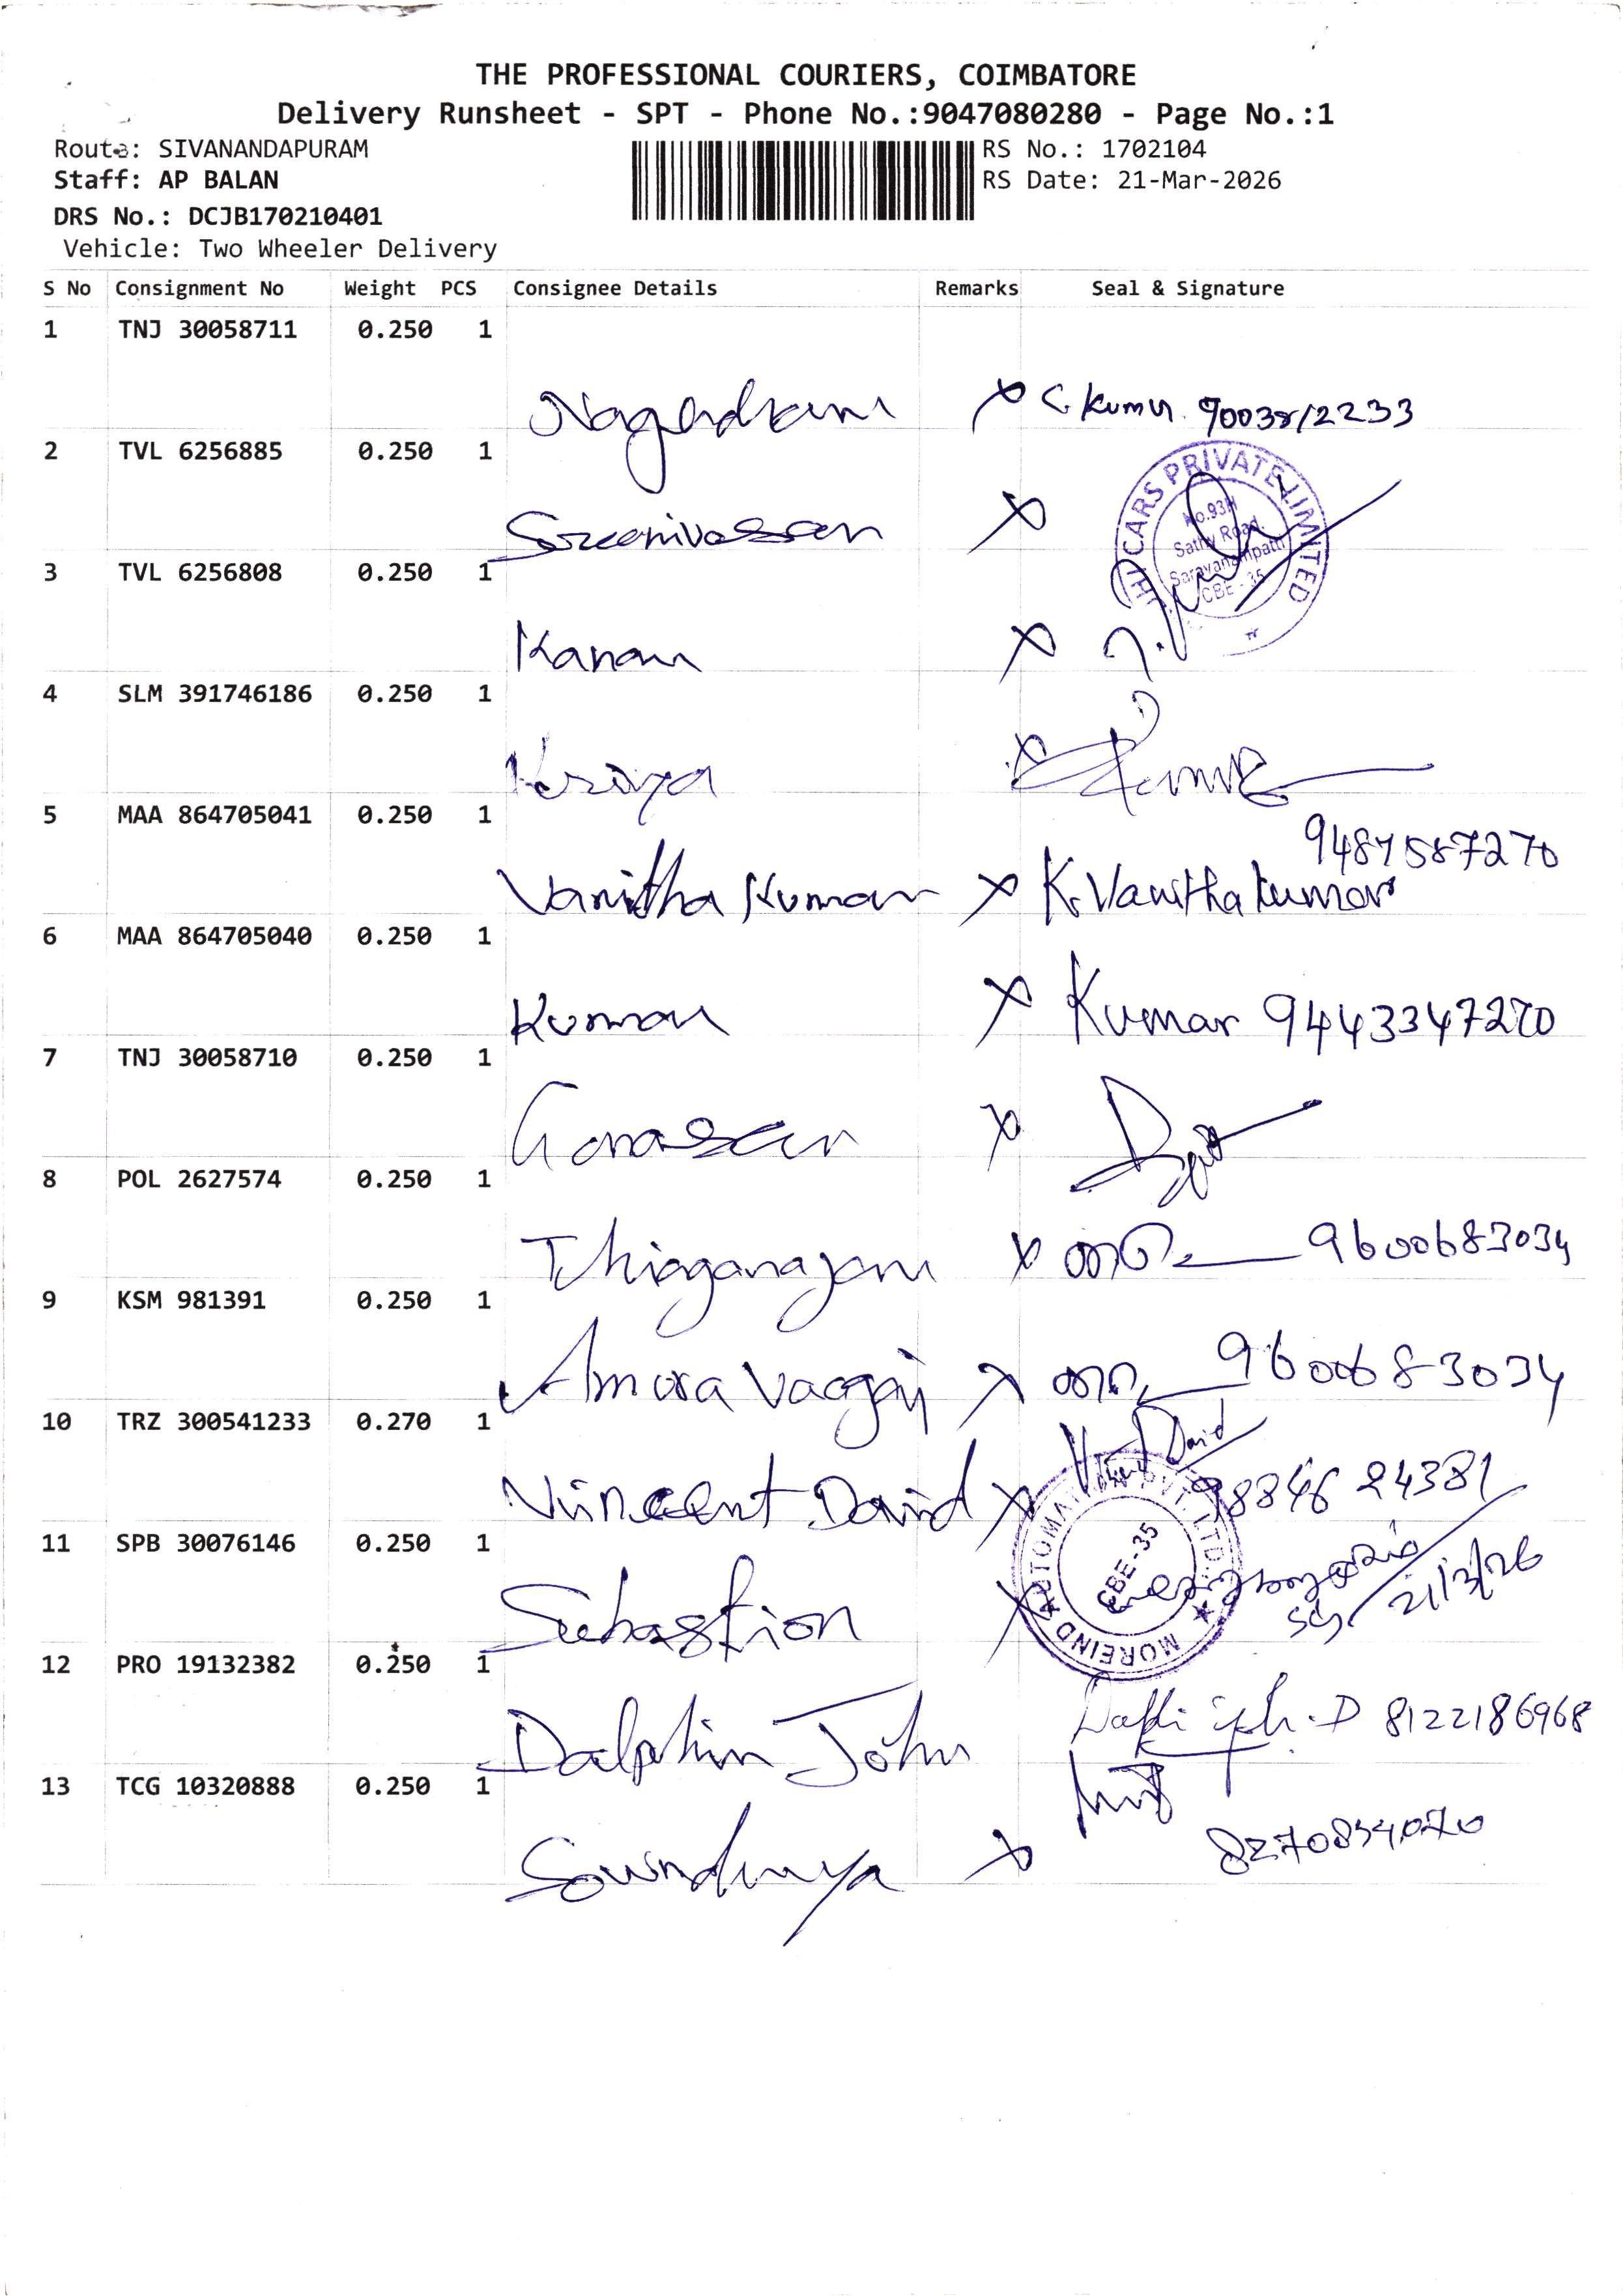 THE PROFESSIONAL COURIERS, COIMBATORE
Delivery Runsheet - SPT - Phone No.:9047080280 - Page No.:1
Route: SIVANANDAPURAM
RS No.: 1702104
Staff: AP BALAN
RS Date: 21-Mar-2026
DRS No.: DCJB170210401
Vehicle: Two Wheeler Delivery
S No Consignment No Weight PCS Consignee Details Remarks Seal & Signature
1 TNJ 30058711 0.250 1
X C. Kumar
2 TVL 6256885 0.250 1
Sreenivassan X
CARS PRIVATE LIMITED
No.93H
Sathy Road,
Saravanampatti
CBE - 35
3 TVL 6256808 0.250 1
Kanan X
4 SLM 391746186 0.250 1
X
5 MAA 864705041 0.250 1
9487587270
Vanitha Kumar X K. Vanitha kumar
6 MAA 864705040 0.250 1
Kumar X Kumar 9443347270
7 TNJ 30058710 0.250 1
X
8 POL 2627574 0.250 1
Thiyaganajan X 9600683034
9 KSM 981391 0.250 1
X 9600683034
10 TRZ 300541233 0.270 1
David
Vincent David X 98846 24381
MOREIND AUTOMATION PVT. LTD.
CBE-35
11 SPB 30076146 0.250 1
Sebastion X 21/3/26
12 PRO 19132382 0.250 1
Dalphin John 8122186968
13 TCG 10320888 0.250 1
Soundharya X 8270834070